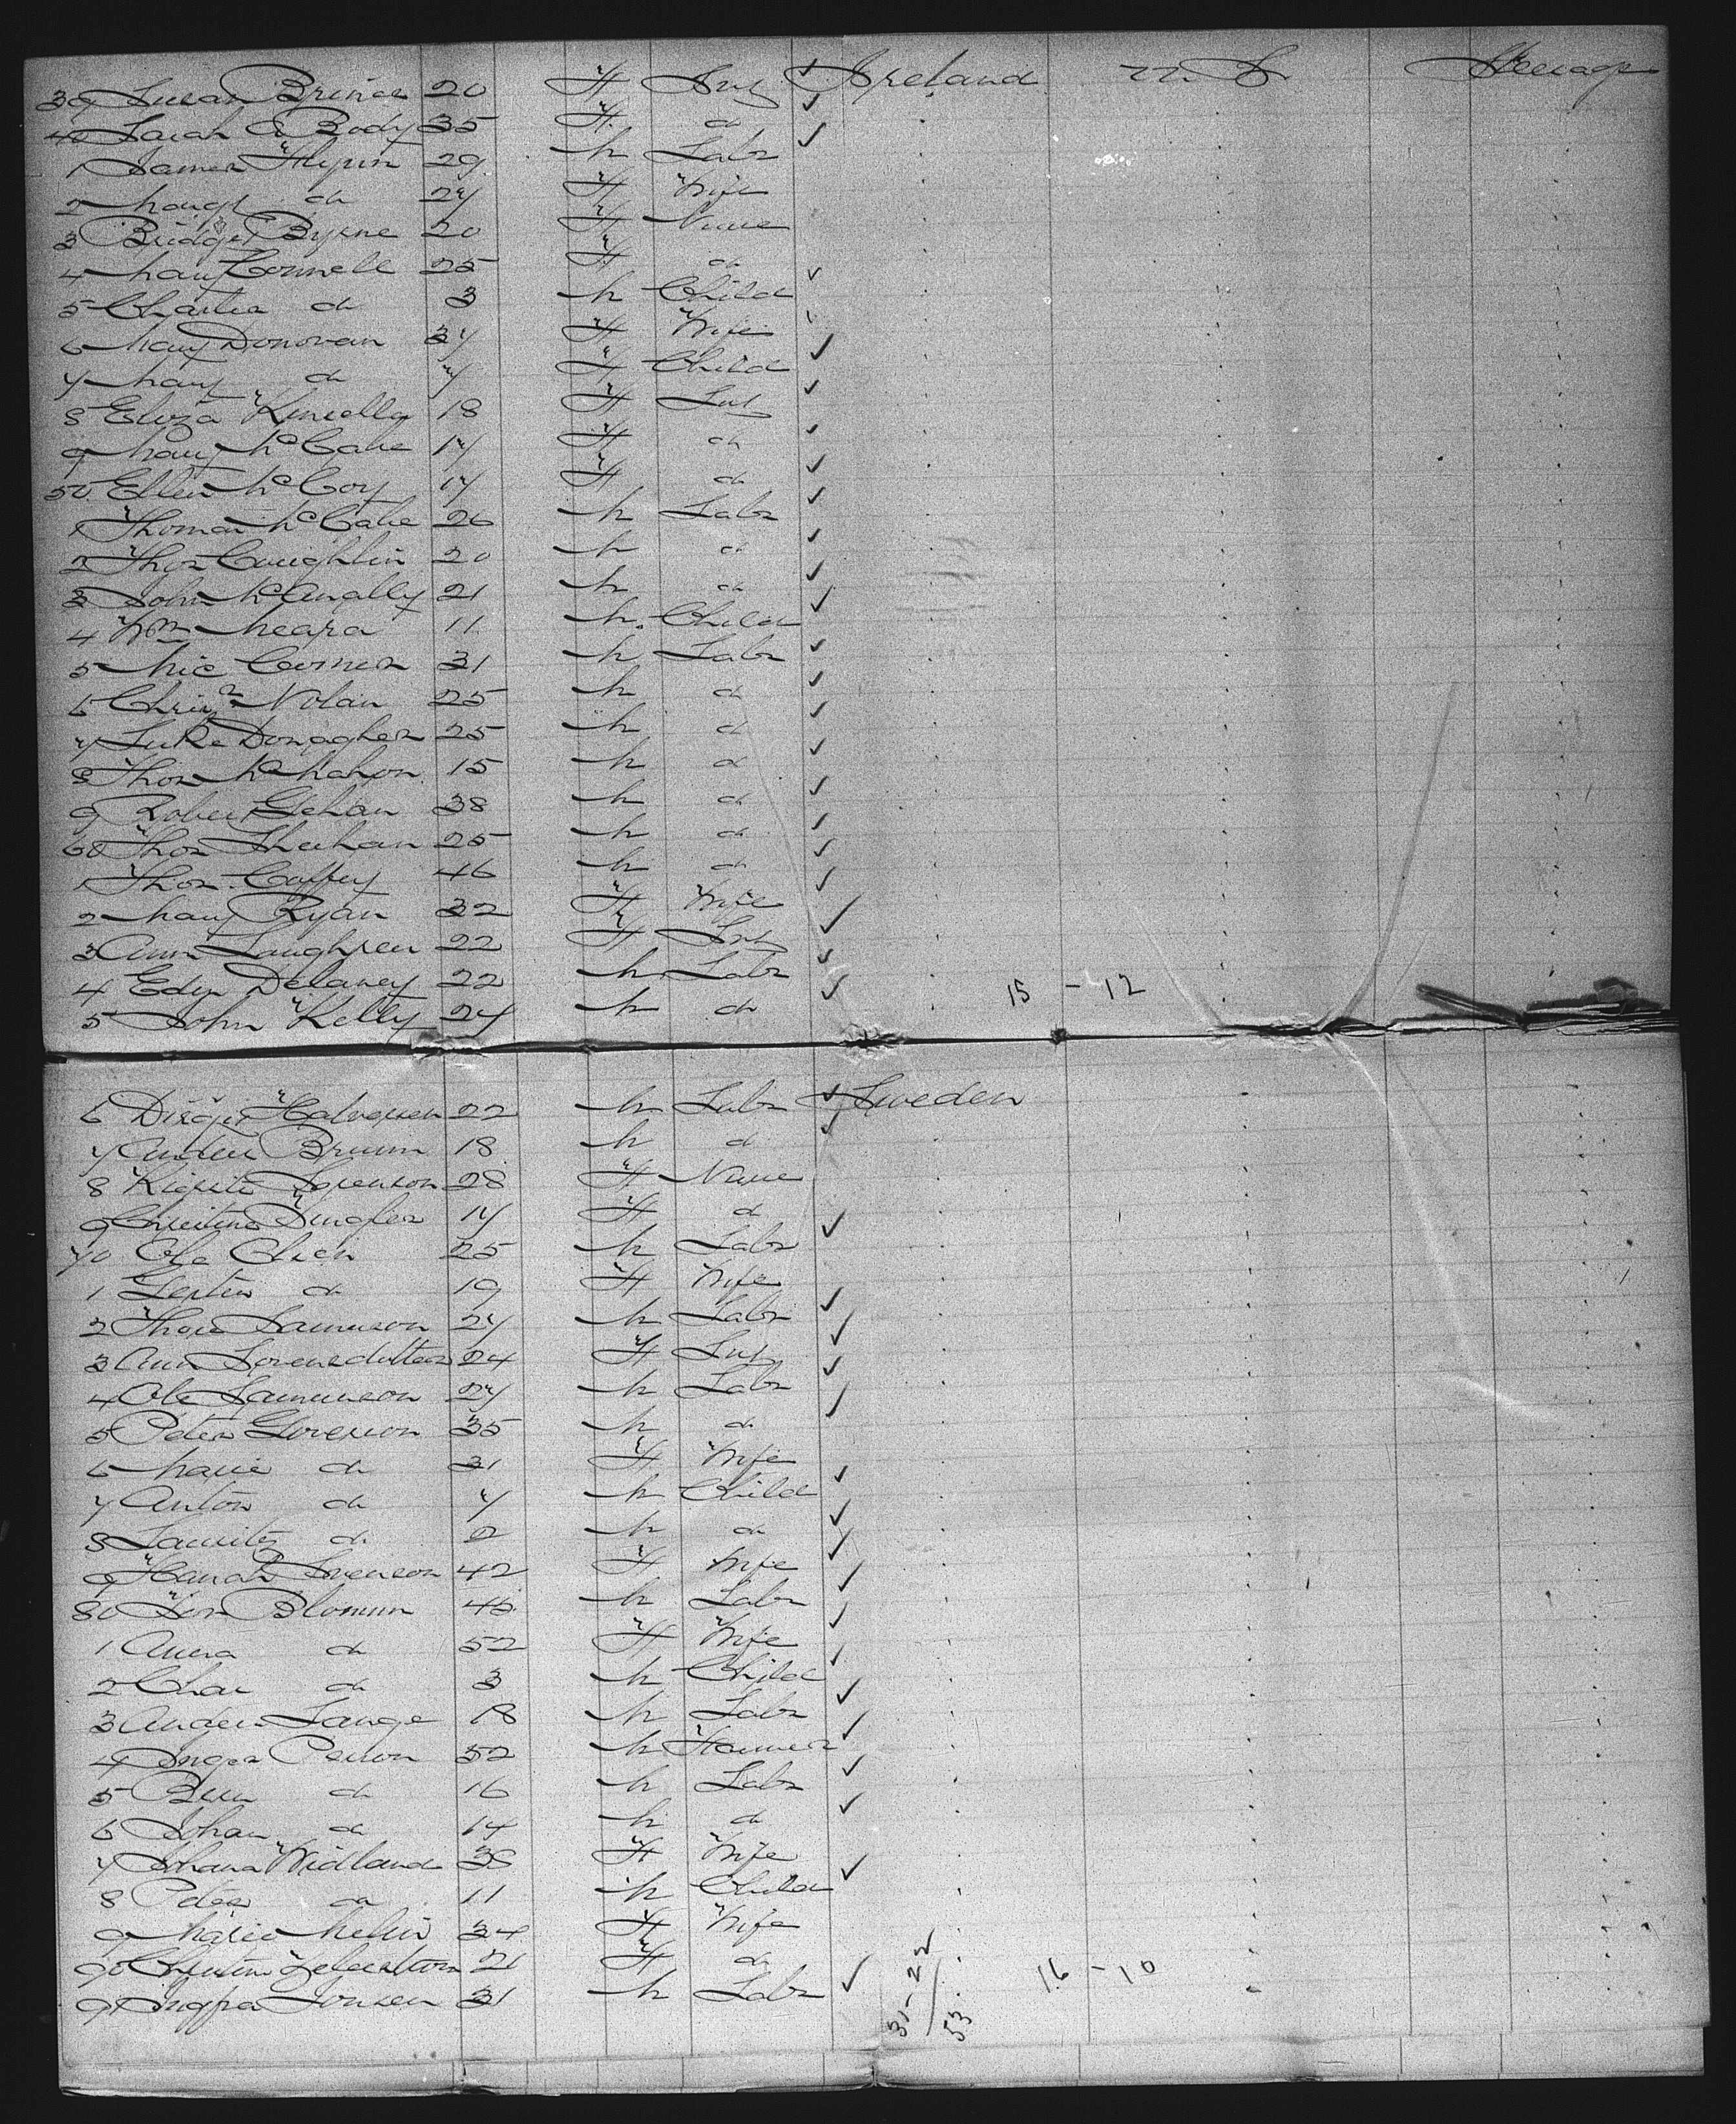 39 Susan 20 F Srv ✓ Ireland U. S. Steerage
40 Sarah Body 35 F do ✓
1 James Flynn 29 M Labr ✓
2 Margt do 27 F Wife
3 Bridget Byrne 20 F None
4 Mary Connell 25 F do
5 Charles do 3 M Child ✓
6 Mary Donovan 37 F Wife ✓
7 Mary do 7 F Child ✓
8 Eliza Kinsella 18 F Srv ✓
9 Mary McCabe 17 F do ✓
50 Ellen McCoy 17 F do ✓
1 Thomas McCabe 26 M Labr ✓
2 Thos Coughlin 20 M do ✓
3 John McAnally 21 M do ✓
4 Wm Meara 11 M Child ✓
5 Mic 31 M Labr ✓
6 Nolan 25 M do ✓
7 Luke Donagher 25 M do ✓
8 Thos McMahon 15 M do ✓
9 Robert Gehan 38 M do ✓
60 Thos Sheehan 25 M do ✓
1 Thos Caffey 46 M do ✓
2 Mary Ryan 32 F Wife ✓
3 Ann Laughren 22 F Srv ✓
4 Edw Delaney 22 M Labr ✓
5 John Kelly 24 M do ✓ 15 - 12
6 Halvorsen 22 M Labr ✓ Sweden
7 Anders Bruun 18 M do ✓
8 Sorenson 28 F None
9 Christine 17 F do
70 Ole Olsen 25 M Labr ✓
1 do 19 F Wife
2 Thos Samuson 27 M Labr ✓
3 Ann Sorensdotter 24 F Srv ✓
4 Ole Samunson 27 M Labr ✓
5 Peter 35 M do ✓
6 Marie do 31 F Wife
7 Anton do 7 M Child ✓
8 Lauritz do 2 M do ✓
9 Hanah Svenson 42 F Wife ✓
80 Blomun M Labr ✓
1 Anna do 52 F Wife ✓
2 Chas do 3 M Child ✓
3 Anders Lange 18 M Labr ✓
4 52 M Farmer ✓
5 do 16 M Labr ✓
6 Johan do 14 M do ✓
7 Johana Widland 38 F Wife
8 Peter do 11 M Child ✓
9 Marie Melin 34 F Wife
90 21 F do
91 31 M Labr ✓ 31-22/53 16 - 10